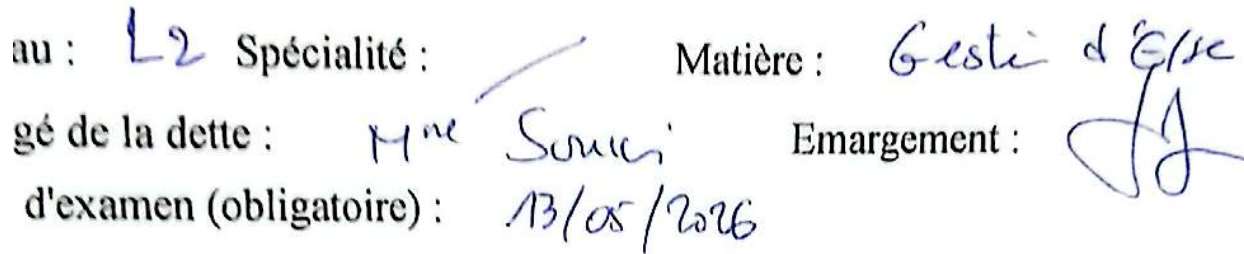 au : L2 Spécialité : / Matière : Gestion d'E/se
gé de la dette : Mme Emargement :
d'examen (obligatoire) : 13/05/2026